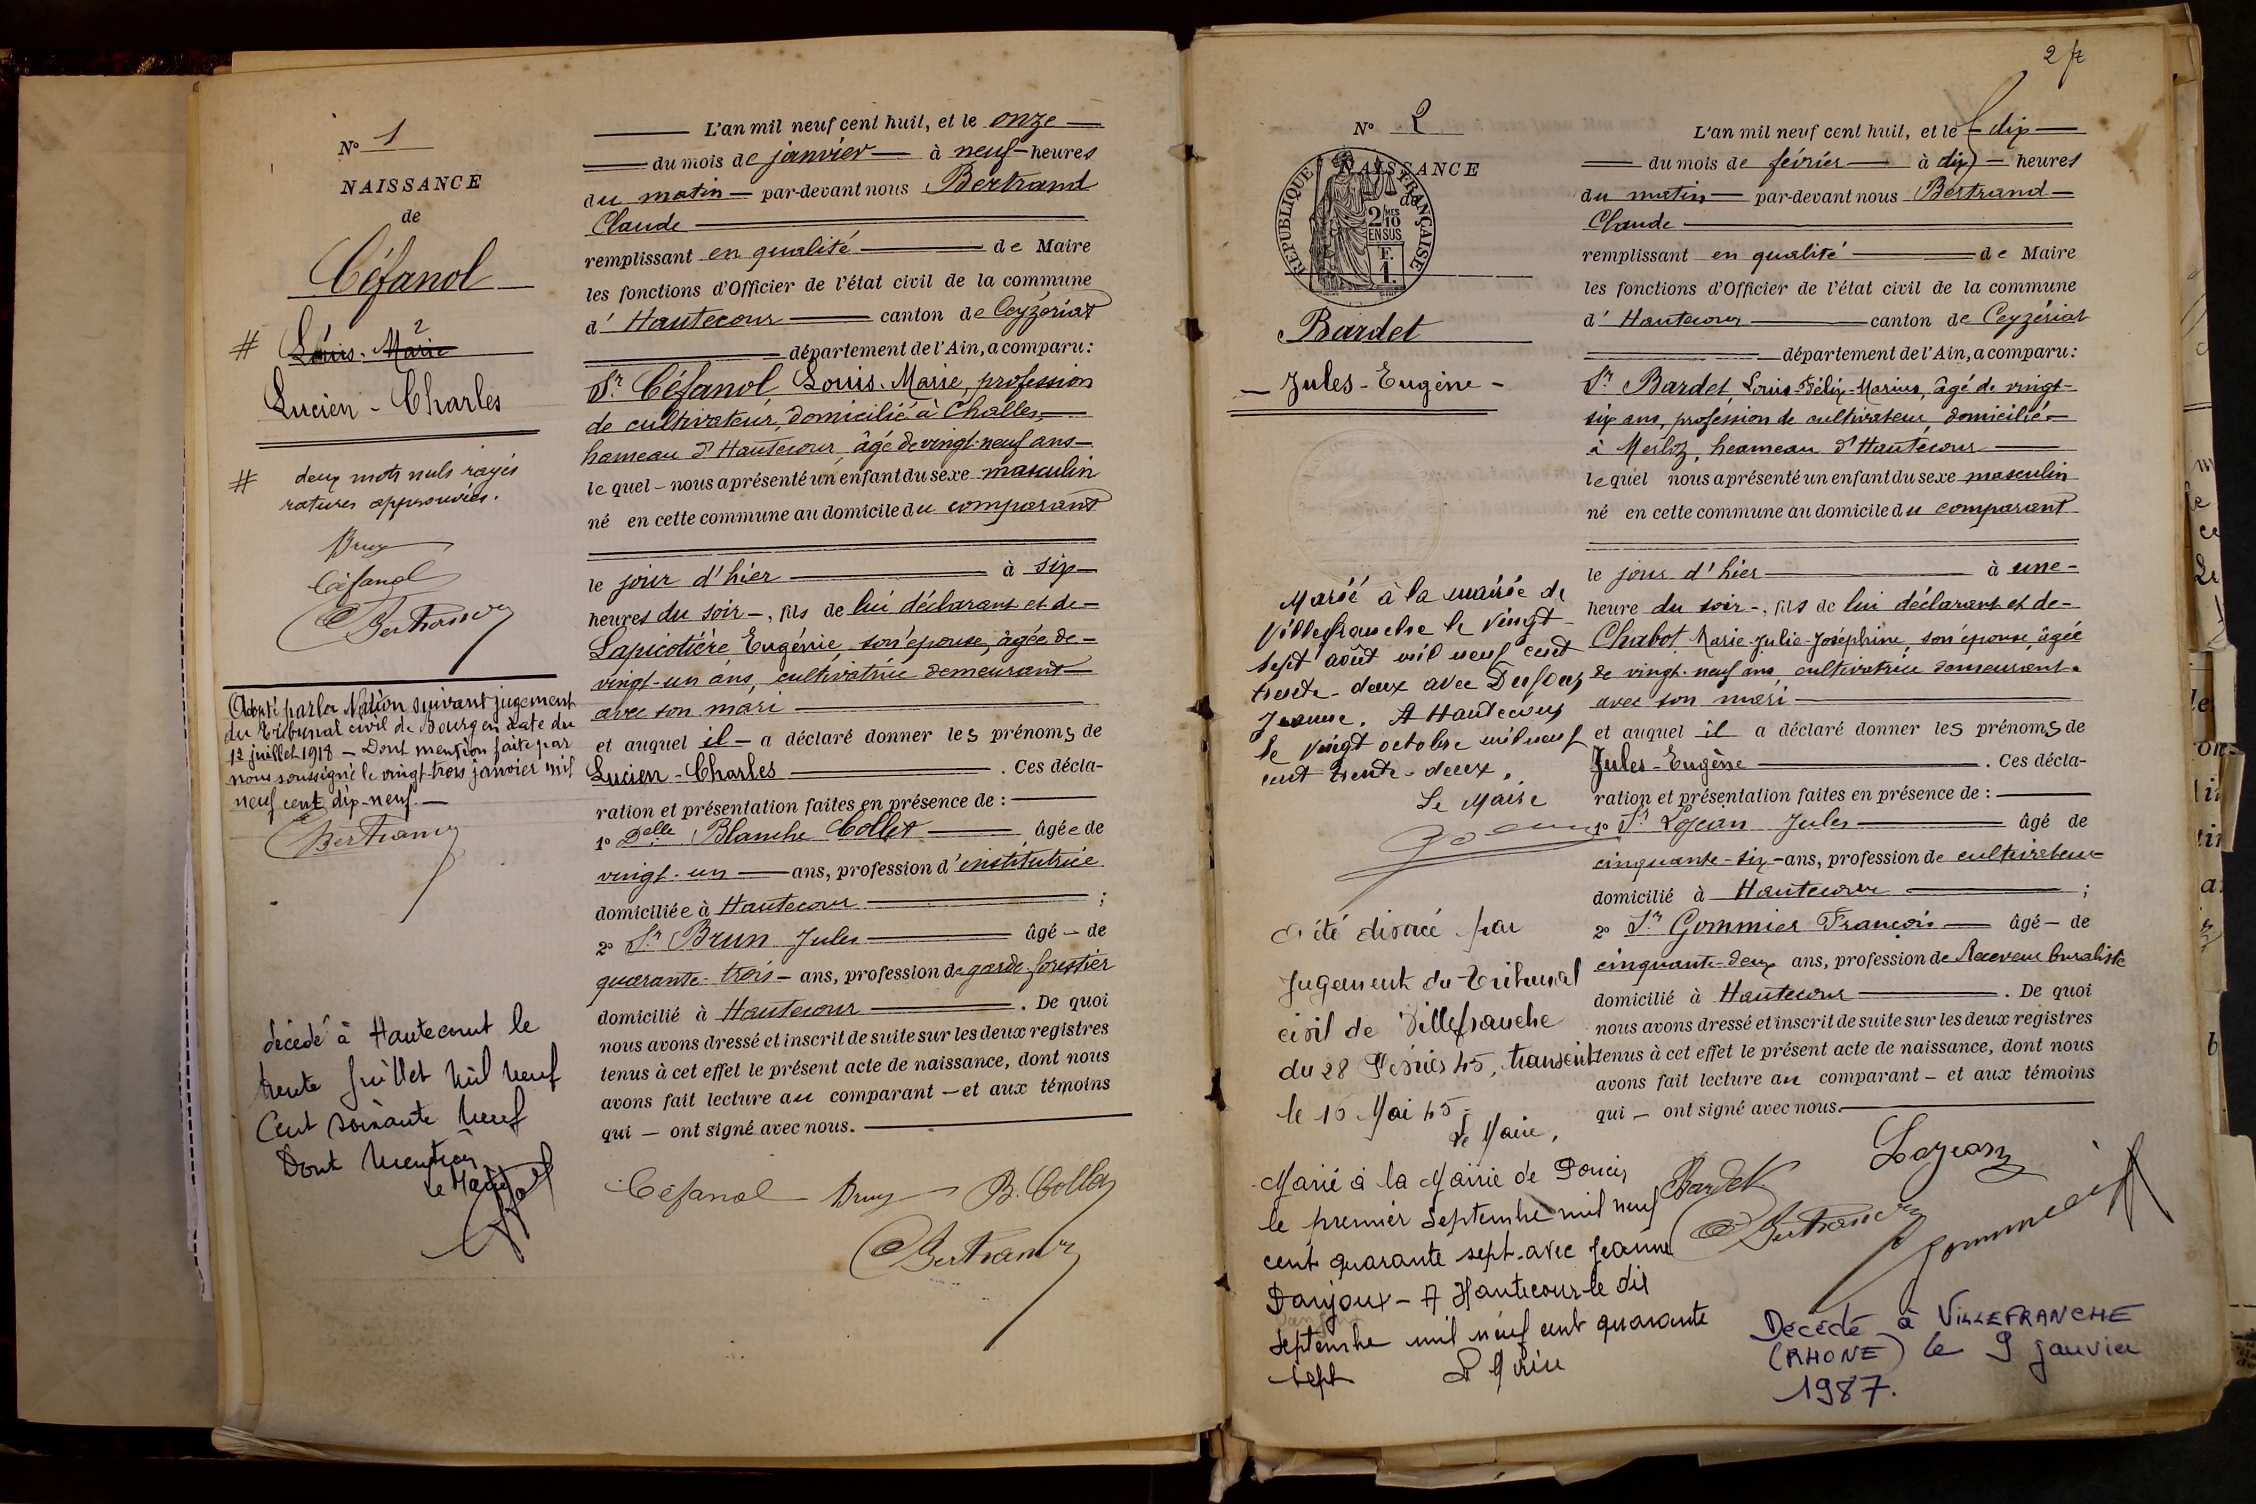 N° 1
NAISSANCE
de
Céfanol
# Louis-Marie
Lucien - Charles
# deux mots nuls rayés
ratures approuvées.
Céfanol
Bertrand
Adopté par la Nation suivant jugement
du Tribunal civil de Bourg en date du
12 juillet 1918 - Dont mention faite par
nous soussigné le vingt-trois janvier mil
neuf cent dix-neuf.
Bertrand
décédé à Hautecourt le
trente juillet mil neuf
Cent soixante neuf
Dont mention
Le Maire
L'an mil neuf cent huit, et le onze
du mois de janvier à neuf heures
du matin par-devant nous Bertrand
Claude
remplissant en qualité de Maire
les fonctions d'Officier de l'état civil de la commune
d'Hautecour canton de Ceyzériat
département de l'Ain, a comparu:
Sr Céfanol, Louis-Marie, profession
de cultivateur, domicilié à Challes,
hameau d'Hautecour, âgé de vingt-neuf ans
le quel nous a présenté un enfant du sexe masculin
né en cette commune au domicile du comparant
le jour d'hier à six
heures du soir, fils de lui déclarant et de
Lapicotière Eugénie, son épouse, âgée de
vingt-un ans, cultivatrice demeurant
avec son mari
et auquel il a déclaré donner les prénoms de
Lucien-Charles . Ces décla-
ration et présentation faites en présence de :
1° Delle Blanche Collet âgée de
vingt-un ans, profession d'institutrice
domiciliée à Hautecour ;
2° Sr Brun Jules âgé de
quarante-trois ans, profession de garde-forestier
domicilié à Hautecour . De quoi
nous avons dressé et inscrit de suite sur les deux registres
tenus à cet effet le présent acte de naissance, dont nous
avons fait lecture au comparant et aux témoins
qui ont signé avec nous.
Céfanol B. Collet
Bertrand
2
N° 2
NAISSANCE
de
REPUBLIQUE FRANÇAISE
2/10 EN SUS
F. 1.
Bardet
Jules-Eugène
Marié à la mairie de
Villefranche le vingt
sept août mil neuf cent
trente-deux avec Dufour
Jeanne. A Hautecour
le vingt octobre mil neuf
cent trente-deux.
Le Maire
a été divorcé par
Jugement du Tribunal
civil de Villefranche
du 28 Février 45, transcrit
le 15 Mai 45
Le Maire,
Marié à la Mairie de Poncin
le premier septembre mil neuf
cent quarante sept avec Jeanne
Danjoux - A Hautecour le dix
septembre mil neuf cent quarante
sept
L'an mil neuf cent huit, et le dix
du mois de février à dix heures
du matin par-devant nous Bertrand
Claude
remplissant en qualité de Maire
les fonctions d'Officier de l'état civil de la commune
d'Hautecour canton de Ceyzériat
département de l'Ain, a comparu:
Sr Bardet, Louis-Félix-Marius, âgé de vingt-
six ans, profession de cultivateur, domicilié
à Merloz, heameau d'Hautecour
le quel nous a présenté un enfant du sexe masculin
né en cette commune au domicile du comparant
le jour d'hier à une
heure du soir, fils de lui déclarant et de
Chabot, Marie-Julie-Joséphine, son épouse, âgée
de vingt-neuf ans, cultivatrice demeurant
avec son mari
et auquel il a déclaré donner les prénoms de
Jules-Eugène . Ces décla-
ration et présentation faites en présence de :
1° Sr Lojean Jules âgé de
cinquante-six ans, profession de cultivateur
domicilié à Hautecour ;
2° Sr Gommier François âgé de
cinquante-deux ans, profession de Receveur buraliste
domicilié à Hautecour . De quoi
nous avons dressé et inscrit de suite sur les deux registres
tenus à cet effet le présent acte de naissance, dont nous
avons fait lecture au comparant et aux témoins
qui ont signé avec nous.
Bardet Lojean
Bertrand Gommier
Décédé à VILLEFRANCHE
(RHONE) le 9 janvier
1987.